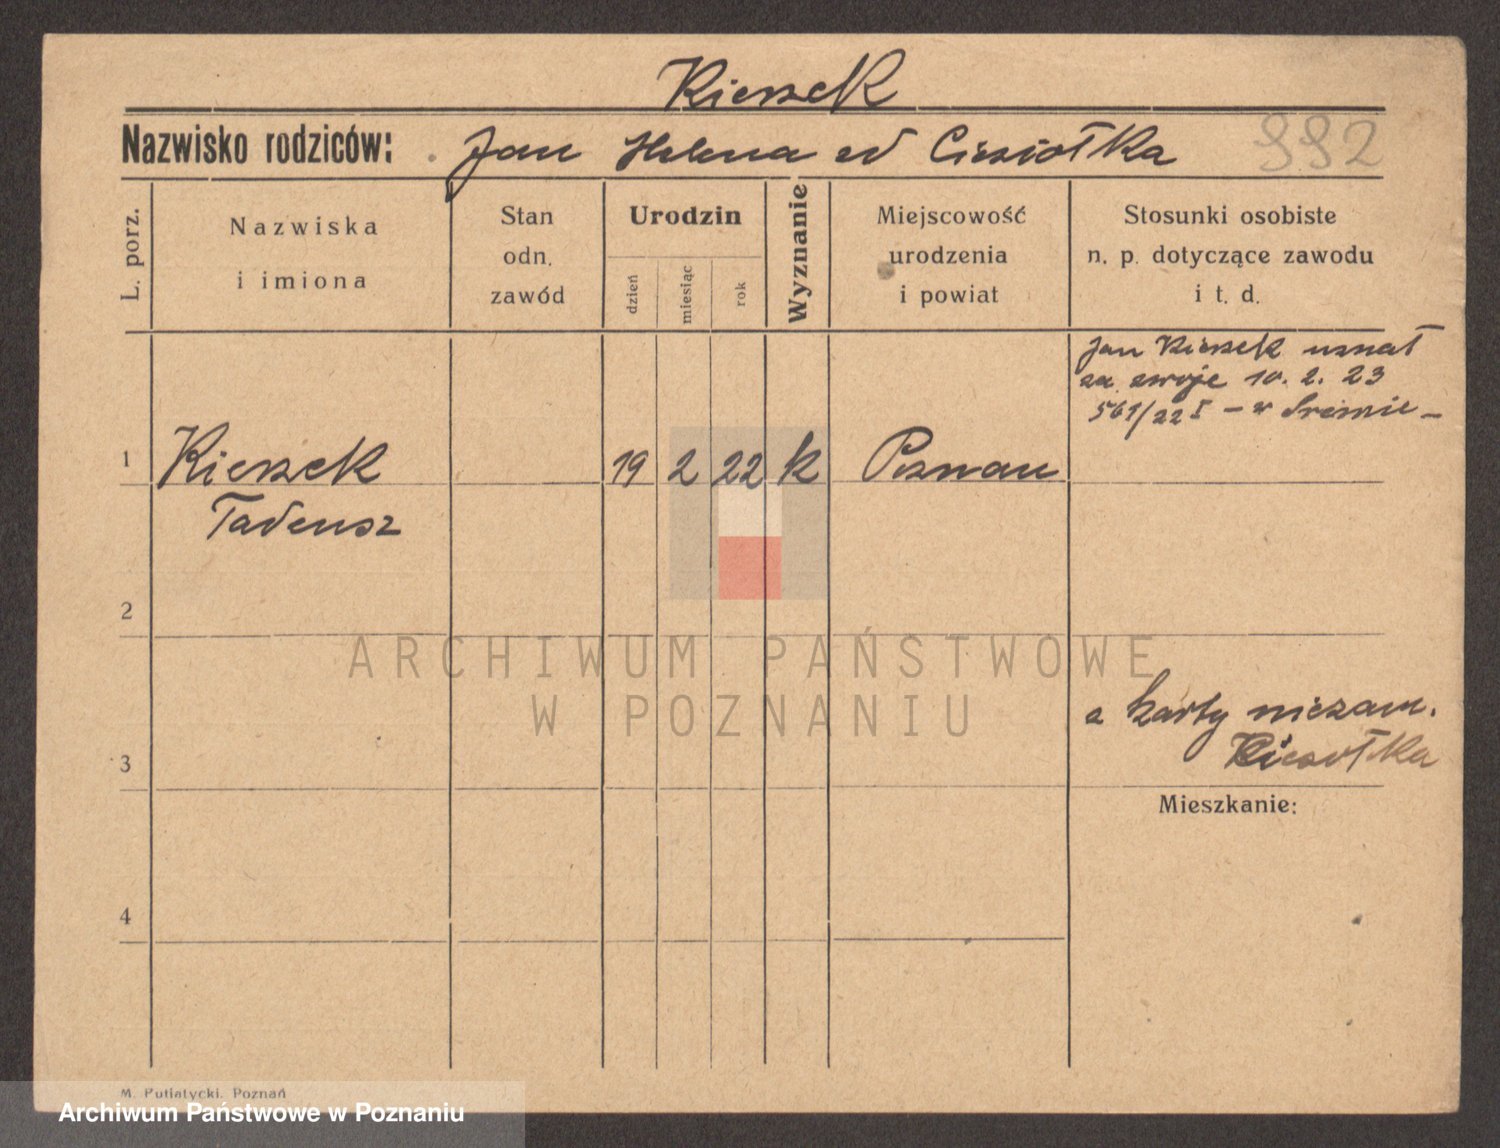 Kierzek
Nazwisko rodziców: Jan Helena Ciesiołka 992
L. porz.
Nazwiska
i imiona
Stan
odn.
zawód
Urodzin
dzień
miesiąc
rok
Wyznanie
Miejscowość
urodzenia
i powiat
Stosunki osobiste
n. p. dotyczące zawodu
i t. d.
Jan Kierzek uznał
za swoje 10. 2. 23
561/22 I - w Śremie -
1 Kierzek 19 2 22 k Poznan
Tadeusz
2
ARCHIWUM PAŃSTWOWE
W POZNANIU
z karty niezam.
Ciesiołka
3
Mieszkanie:
4
M. Putiatycki. Poznań
Archiwum Państwowe w Poznaniu